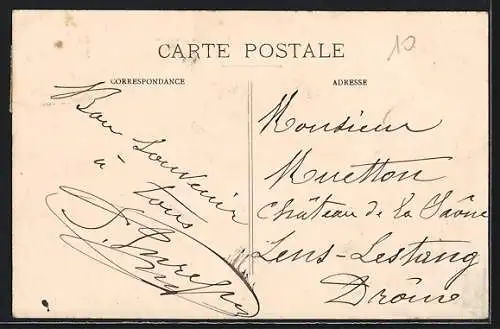 CARTE POSTALE
10
CORRESPONDANCE
ADRESSE
Bon Souvenir
à tous
Monsieur
Muetton
Château de la Saône
Lens-Lestang
Drôme